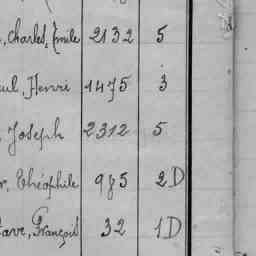 , Charles, Emile 2132 5
ul, Henri 1475 3
, Joseph 2312 5
r, Théophile 985 2D
ave, François 32 1D